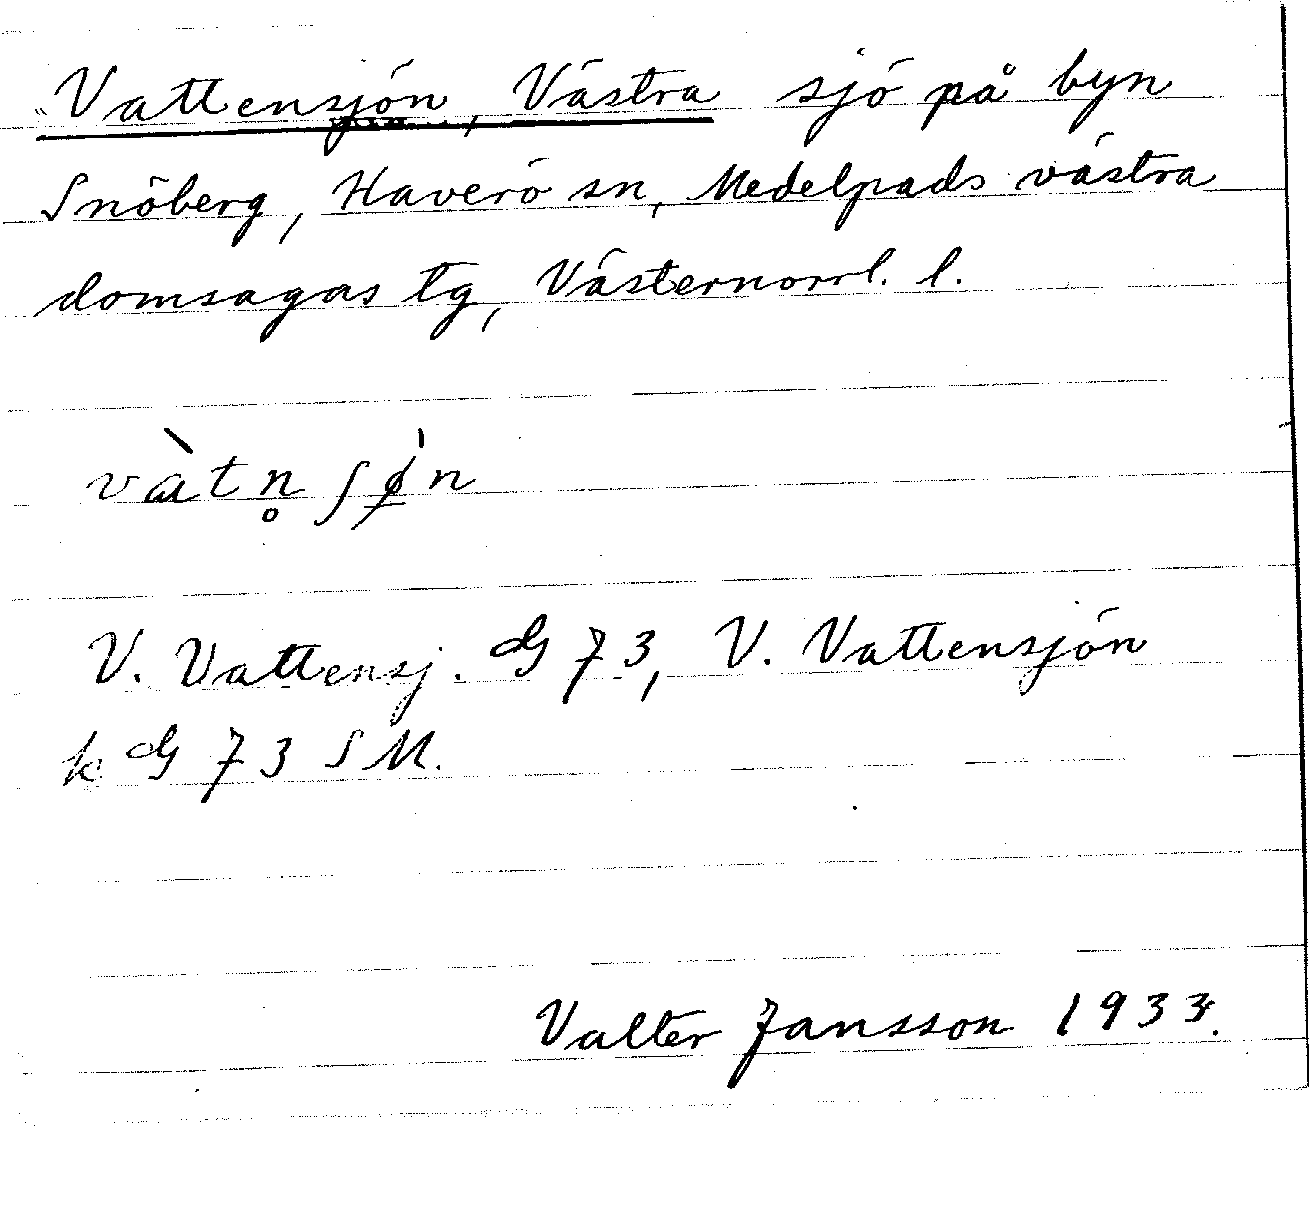 Vattensjön, Västra sjö på byn
Snöberg, Haverö sn, Medelpads västra
domsagas tg, Västernorrl. l.
vàtn̥ ʃø̍n
V. Vattensj. G 73, V. Vattensjön
k G 73 S M.
Valter Jansson 1933.